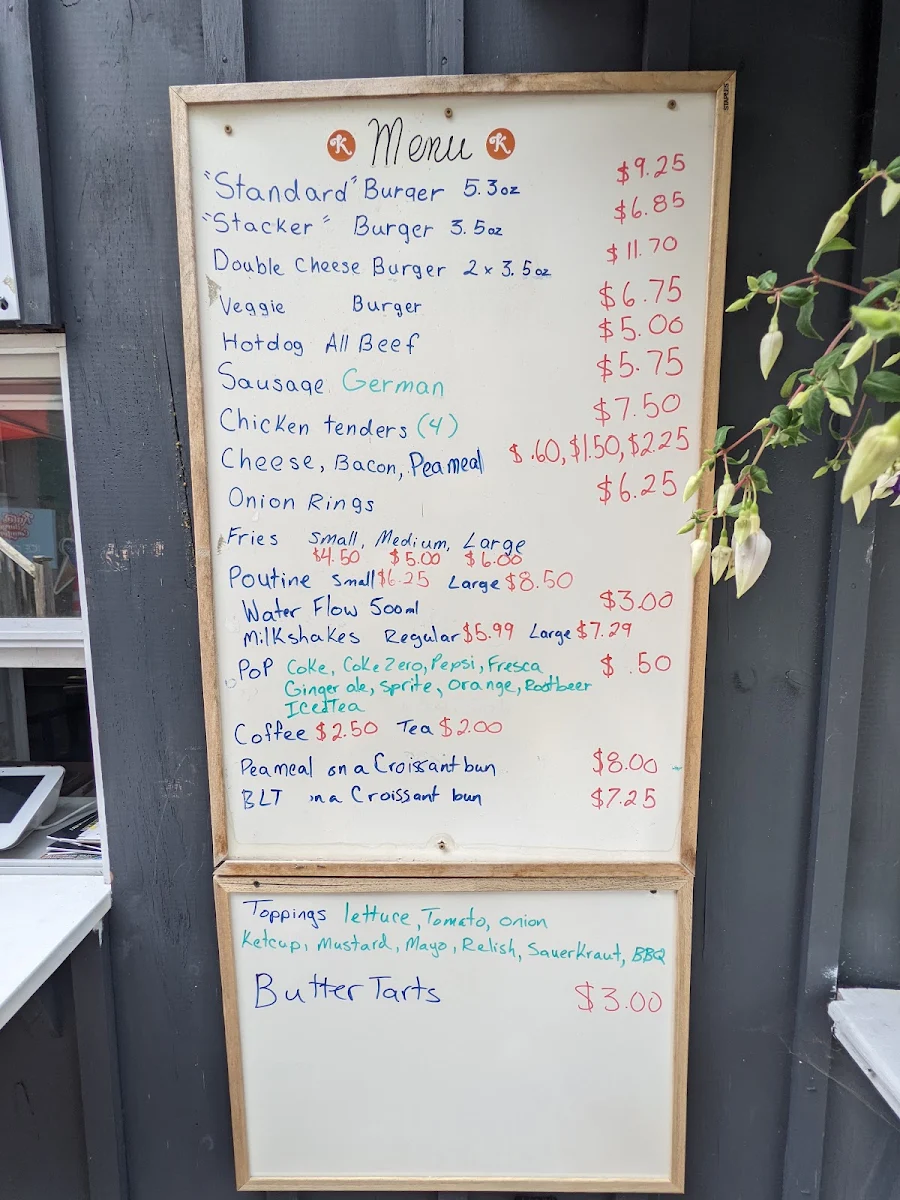 K Menu K
"Standard" Burger 5.3oz $9.25
"Stacker" Burger 3.5oz $6.85
Double Cheese Burger 2 x 3.5oz $11.70
Veggie Burger $6.75
Hotdog All Beef $5.00
Sausage German $5.75
Chicken tenders (4) $7.50
Cheese, Bacon, Peameal $.60, $1.50, $2.25
Onion Rings $6.25
Fries Small, Medium, Large
$4.50 $5.00 $6.00
Poutine Small $6.25 Large $8.50
Water Flow 500ml $3.00
Milkshakes Regular $5.99 Large $7.29
Pop Coke, Coke Zero, Pepsi, Fresca $ .50
Ginger ale, Sprite, Orange, Rootbeer
IcedTea
Coffee $2.50 Tea $2.00
Peameal on a Croissant bun $8.00
BLT on a Croissant bun $7.25
Toppings lettuce, Tomato, onion
Ketcup, Mustard, Mayo, Relish, SauerKraut, BBQ
Butter Tarts $3.00
STAPLES